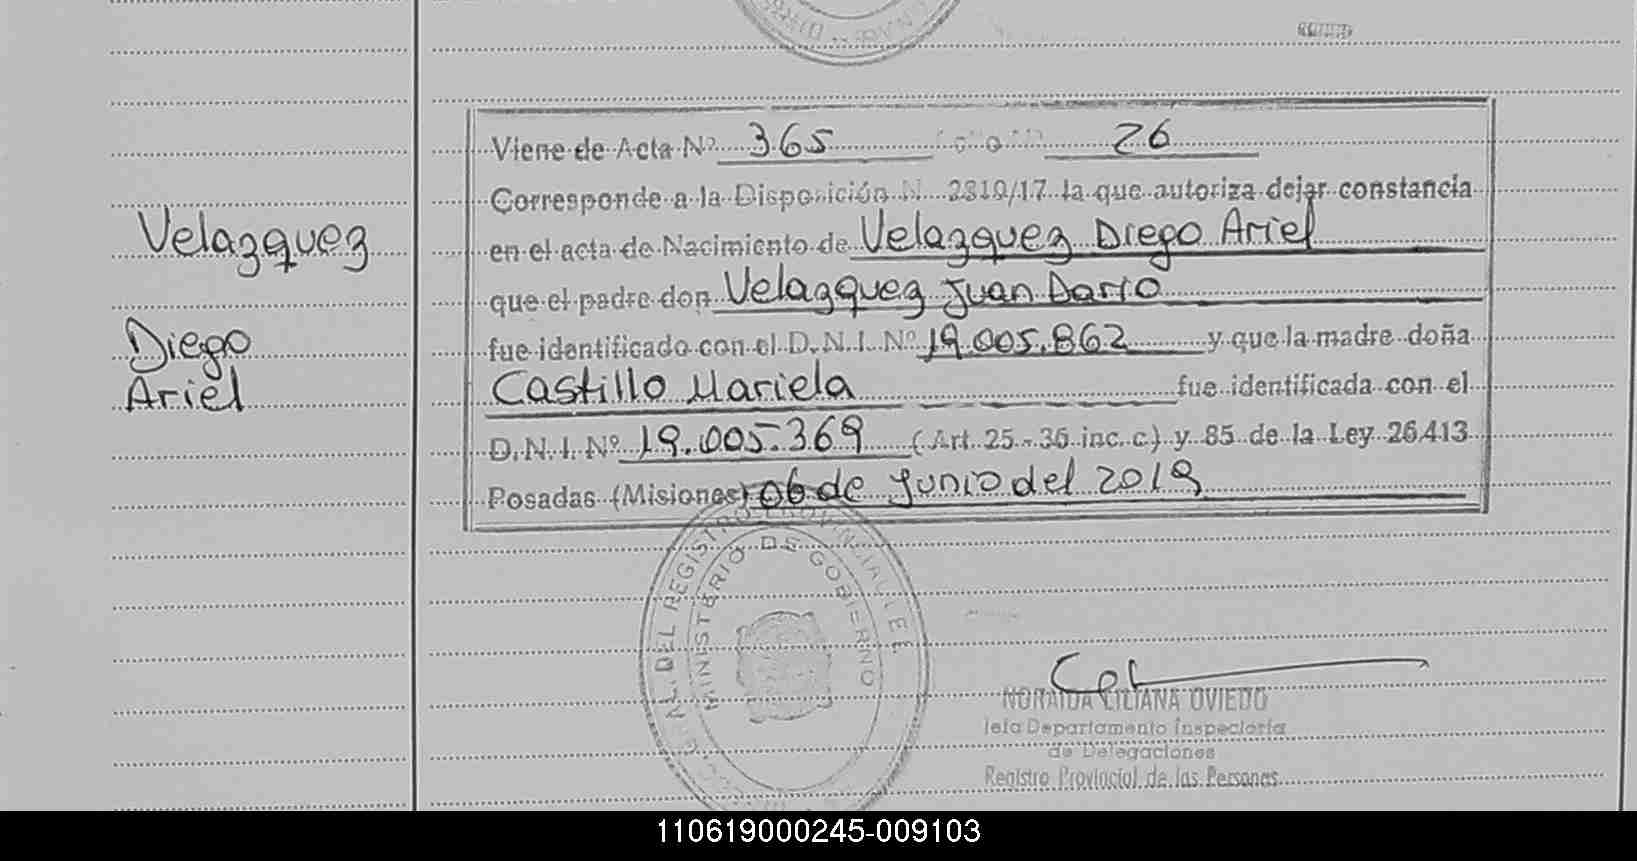 Velazquez
Diego
Ariel
Viene de Acta Nº 365 26
Corresponde a la Disposición N 2810/17 la que autoriza dejar constancia
en el acta de Nacimiento de Velazquez Diego Ariel
que el padre don Velazquez Juan Dario
fue identificado con el D.N.I. Nº 19.005.862 y que la madre doña
Castillo Mariela fue identificada con el
D.N.I. Nº 19.005.369 (Art. 25 - 36 inc. c) y 85 de la Ley 26413
Posadas (Misiones) 06 de Junio del 2019
AL. DEL REGISTRO PROVINCIAL
MINISTERIO DE GOBIERNO
NORAIDA LILIANA OVIEDO
Jefa Departamento Inspectoria
de Delegaciones
Registro Provincial de las Personas
110619000245-009103